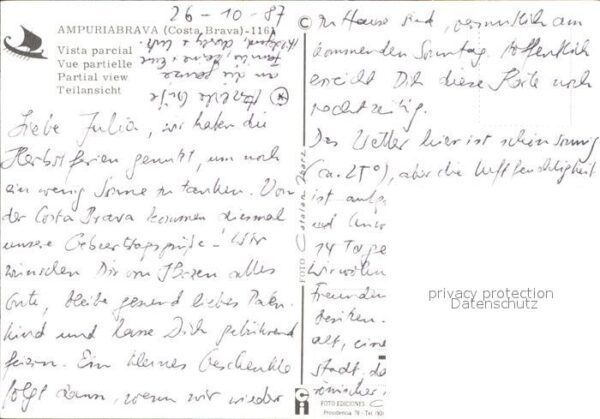 26-10-87
AMPURIABRAVA (Costa Brava)-116
Vista parcial
Vue partielle
Partial view
Teilansicht
Herzliche Grüße
an die ganze
Familie
Liebe Julia, wir haben die
Herbstferien genutzt, um noch
ein wenig Sonne zu tanken. Von
der Costa Brava kommen diesmal
unsere Geburtstagsgrüße! Wir
wünschen Dir von Herzen alles
Gute, bleibe gesund liebes Paten-
kind und lasse Dich gebührend
feiern. Ein kleines Geschenkle
folgt dann, wenn wir wieder
FOTO Catalan Ibarz
zu Hause sind, vermutlich am
kommenden Sonntag. Hoffentlich
erreicht Dich diese Karte noch
rechtzeitig.
Das Wetter hier ist schön sonnig
(ca. 25°), aber die Luftfeuchtigkeit
ist
und
14 Tage
Wir
Freunden
besitzen.
alt, eine
stadt. da
römischer
privacy protection
Datenschutz
FOTO EDICIONES C
Providencia 76 - Tel.